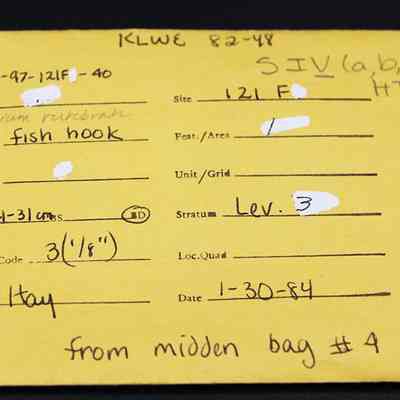 KLWE 82-48
-97-121F -40
S IV (a,b,
HT
Site 121 F
fish hook
Feat./Area /
Unit/Grid
1-31cm BD
Stratum Lev. 3
Code 3(1/8")
Loc.Quad
Hay
Date 1-30-84
from midden bag # 4